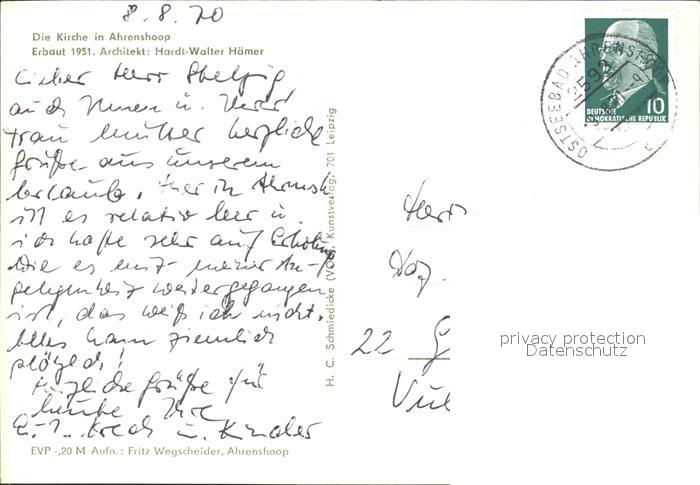 8.8.70
Die Kirche in Ahrenshoop
Erbaut 1951. Architekt: Hardt-Walter Hämer
Lieber Herr
auch Ihnen u. Ihrer
Frau Mutter herzliche
Grüße aus unserem
Urlaub. Hier in Ahrensh
ist es relativ leer u.
ich hoffe sehr auf Erholung
Wie es mit meiner An-
gelegenheit weitergegangen
ist, das weiß ich nicht.
Alles kam ziemlich
plötzlich!
Herzliche Grüße für
heute Ihre
u. Kinder
EVP -,20 M Aufn.: Fritz Wegscheider, Ahrenshoop
H. C. Schmiedicke (VOB), Kunstverlag, 701 Leipzig
OSTSEEBAD AHRENSHOOP
2593
10
DEUTSCHE
DEMOKRATISCHE REPUBLIK
Herr
22 G
privacy protection
Datenschutz